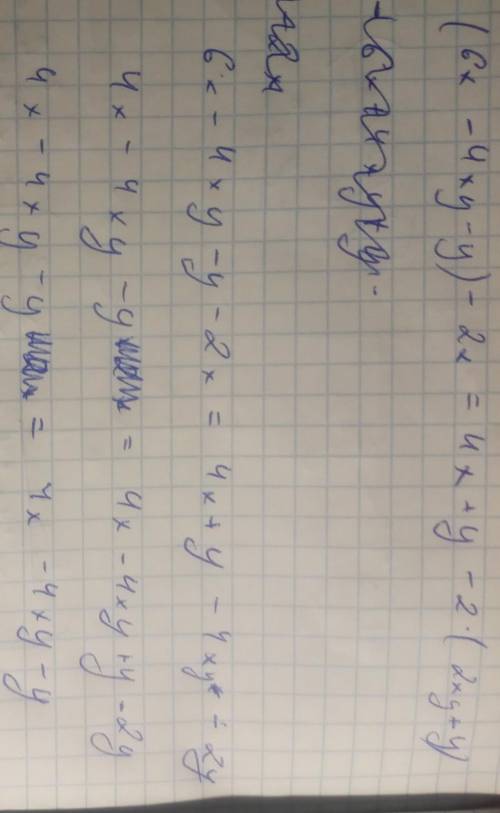 (6x - 4xy - y) - 2x = 4x + y - 2 · (2xy + y)
6x - 4xy - y - 2x = 4x + y - 4xy - 2y
4x - 4xy - y = 4x - 4xy + y - 2y
4x - 4xy - y = 4x - 4xy - y